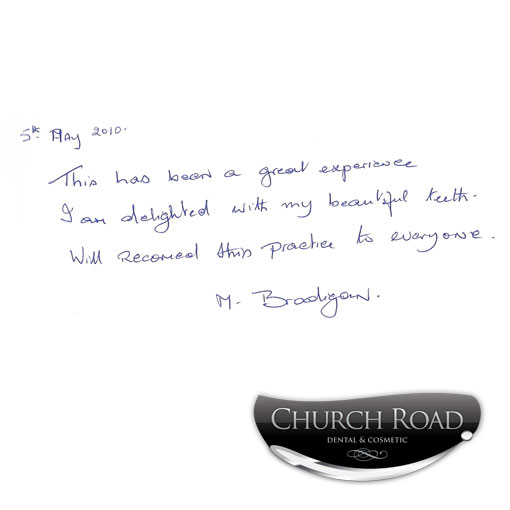 5th May 2010.
This has been a great experience
I am delighted with my beautiful teeth.
Will Recomed this practice to everyone.
M. Bradigan.
CHURCH ROAD
DENTAL & COSMETIC